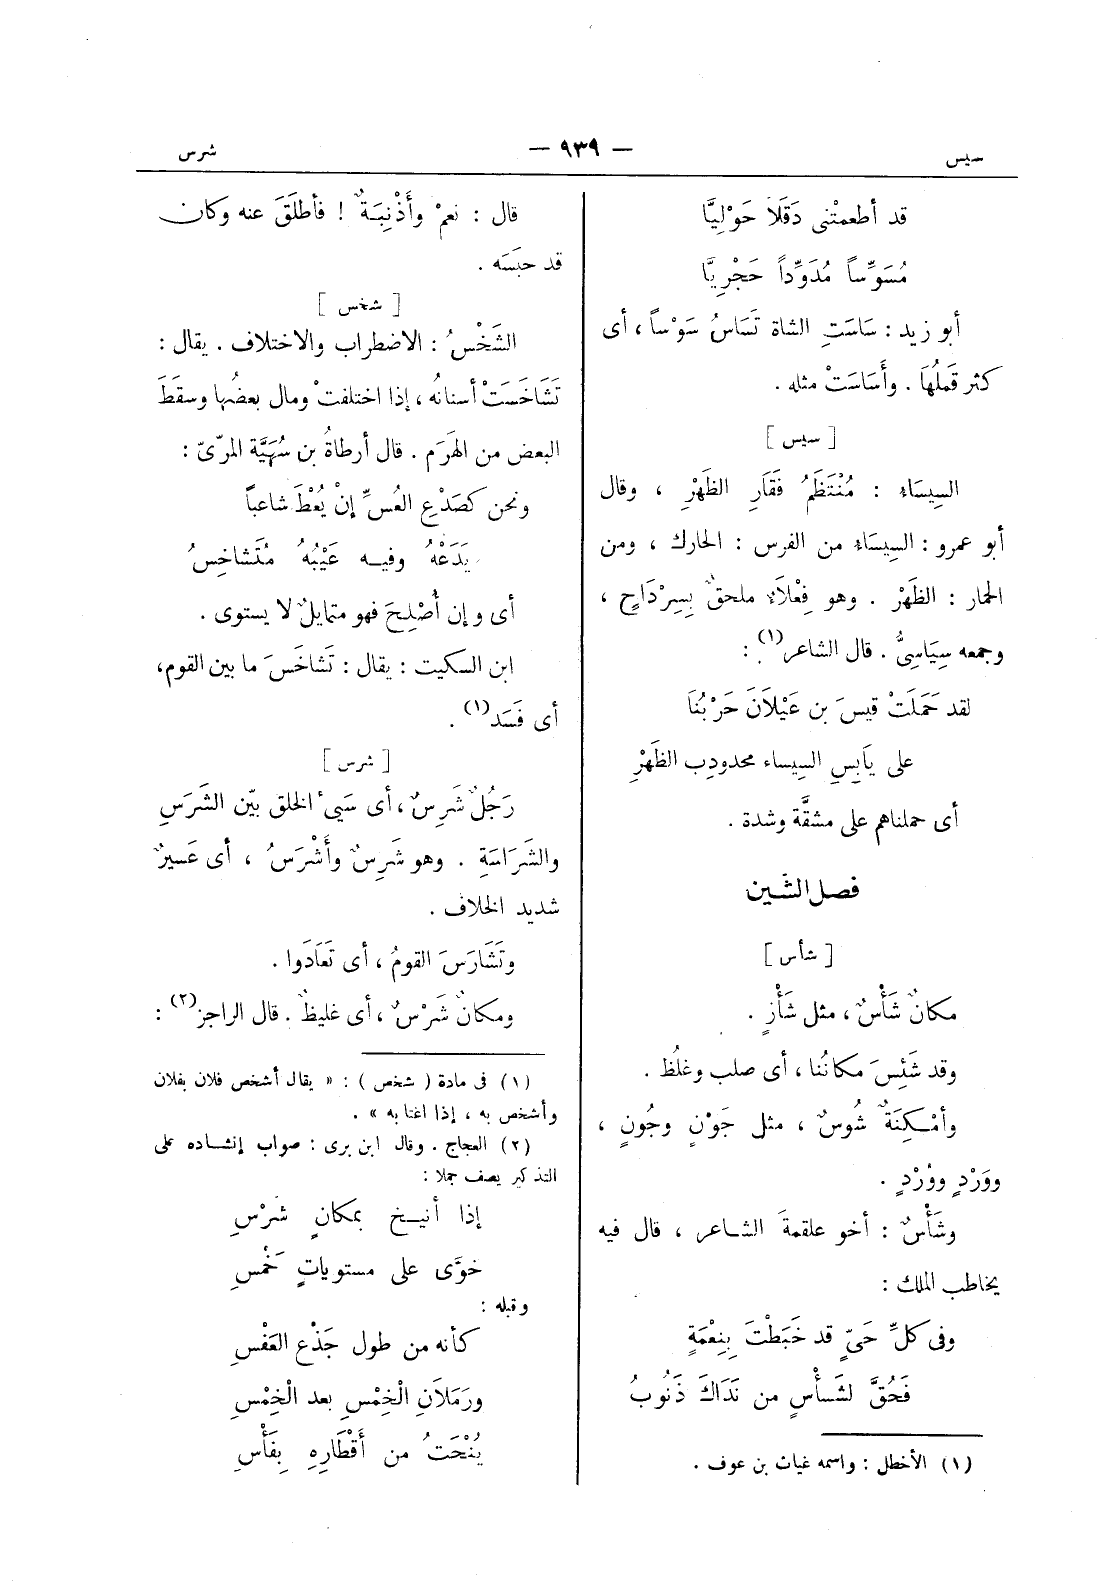 سيس
— ٩٣٩ —
شرس
قد أطعمتْنى دَقَلَا حَوْلِيَّا
مُسَوِّساً مُدَوِّداً حَجْرِيَّا
أبو زيد : سَاسَتِ الشاة تَسَاسُ سَوْساً ، أى
كثر قَملُهَا . وأَسَاسَتْ مثله .
[ سيس ]
السِيسَاء : مُنْتَظَمُ فَقَارِ الظَهْرِ ، وقال
أبو عمرو : السِيسَاء من الفرس : الحارك ، ومن
الحمار : الظَهْر . وهو فِعْلَاء ملحقٌ بِسِرْدَاحٍ ،
وجمعه سِيَاسِىُّ . قال الشاعر(١) :
لقد حَمَلَتْ قيسَ بن عَيْلَانَ حَرْبُنَا
على يَابِسِ السِيساء محدودِب الظَهْرِ
أى حملناهم على مشقَّة وشدة .
فصل الشين
[ شأس ]
مكانٌ شَأْسٌ ، مثل شَأْزٍ .
وقد شَئِسَ مكانُنا ، أى صلب وغلُظ .
وأَمْكِنَةٌ شُوسٌ ، مثل جَوْنٍ وجُونٍ ،
ووَرْدٍ ووُرْدٍ .
وشَأْسٌ : أخو علقمةَ الشاعر ، قال فيه
يخاطب الملك :
وفى كلِّ حَىٍّ قد خَبَطْتَ بِنِعْمَةٍ
فَحُقَّ لشَأْسٍ من نَدَاكَ ذَنُوبُ
(١) الأخطل : واسمه غياث بن عوف .
قال : نعمْ وأَذْنِبَةٌ ! فأطلَقَ عنه وكان
قد حبَسَه .
[ شخس ]
الشَخْسُ : الاضطراب والاختلاف . يقال :
تَشَاخَسَتْ أسنانُه ، إذا اختلفتْ ومال بعضُها وسقَطَ
البعض من الهَرَم . قال أرطاةُ بن سُهَيَّة المرّىّ :
ونحن كصَدْعِ العُسِّ إنْ يُعْطَ شاعباً
يَدَعْهُ وفيه عَيْبُهُ مُتَشاخِسُ
أى وإن أُصْلِحَ فهو متمايلٌ لا يستوى .
ابن السكيت : يقال : تَشَاخَسَ ما بين القوم ،
أى فَسَد(١) .
[ شرس ]
رَجُلٌ شَرِسٌ ، أى سَيئُ الخلق بيّن الشَرَسِ
والشَرَاسَةِ . وهو شَرِسٌ وأَشْرَسُ ، أى عَسيرٌ
شديد الخلاف .
وتَشَارَسَ القومُ ، أى تَعَادَوا .
ومكانٌ شَرْسٌ ، أى غليظٌ . قال الراجز(٢) :
(١) فى مادة ( شخص ) : « يقال أشخص فلان بفلان
وأشخص به ، إذا اغتابه » .
(٢) العجاج . وقال ابن برى : صواب إنشاده على
التذكير يصف جملا :
إذا أنيخ بمكانٍ شَرْسِ
خوَّى على مستوياتٍ خَمْسِ
وقبله :
كأنه من طول جَذْع العَفْسِ
ورَمَلَانِ الْخِمْسِ بعد الْخِمْسِ
يُنْحَتُ من أَقْطَارِهِ بِفَأْسِ